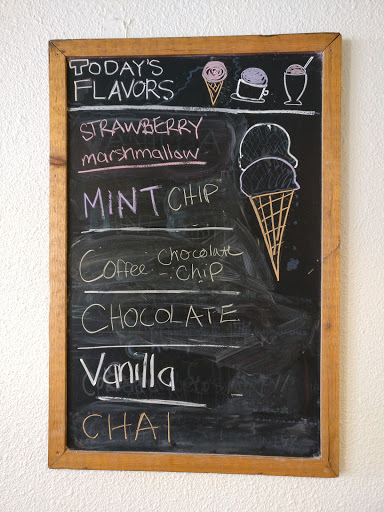 TODAY'S
FLAVORS
STRAWBERRY
marshmallow
MINT CHIP
Coffee Chocolate
Chip
CHOCOLATE
Vanilla
CHAI